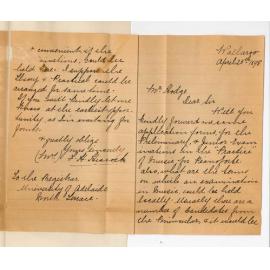 Wallaroo
April 28th 1898
Mr. Hodge
Dear Sir
Will you
kindly forward me some
application forms for the
Preliminary & Junior Exam
inations in the Practice
of Music for Pianoforte
also, what are the terms
on which an examination
in Music, could be held
locally. Usually there are a
number of Candidates from
the Peninsula, & it would be
a convenience if the
exams, could be
held here. I suppose the
Theory & Practical could be
arranged for same time.
If you will kindly let me
know at the earliest oppor
tunity, as I am waiting for
forms.
& greatly oblige
Yours sincerely
To the Registrar
University of Adelaide
North Terrace